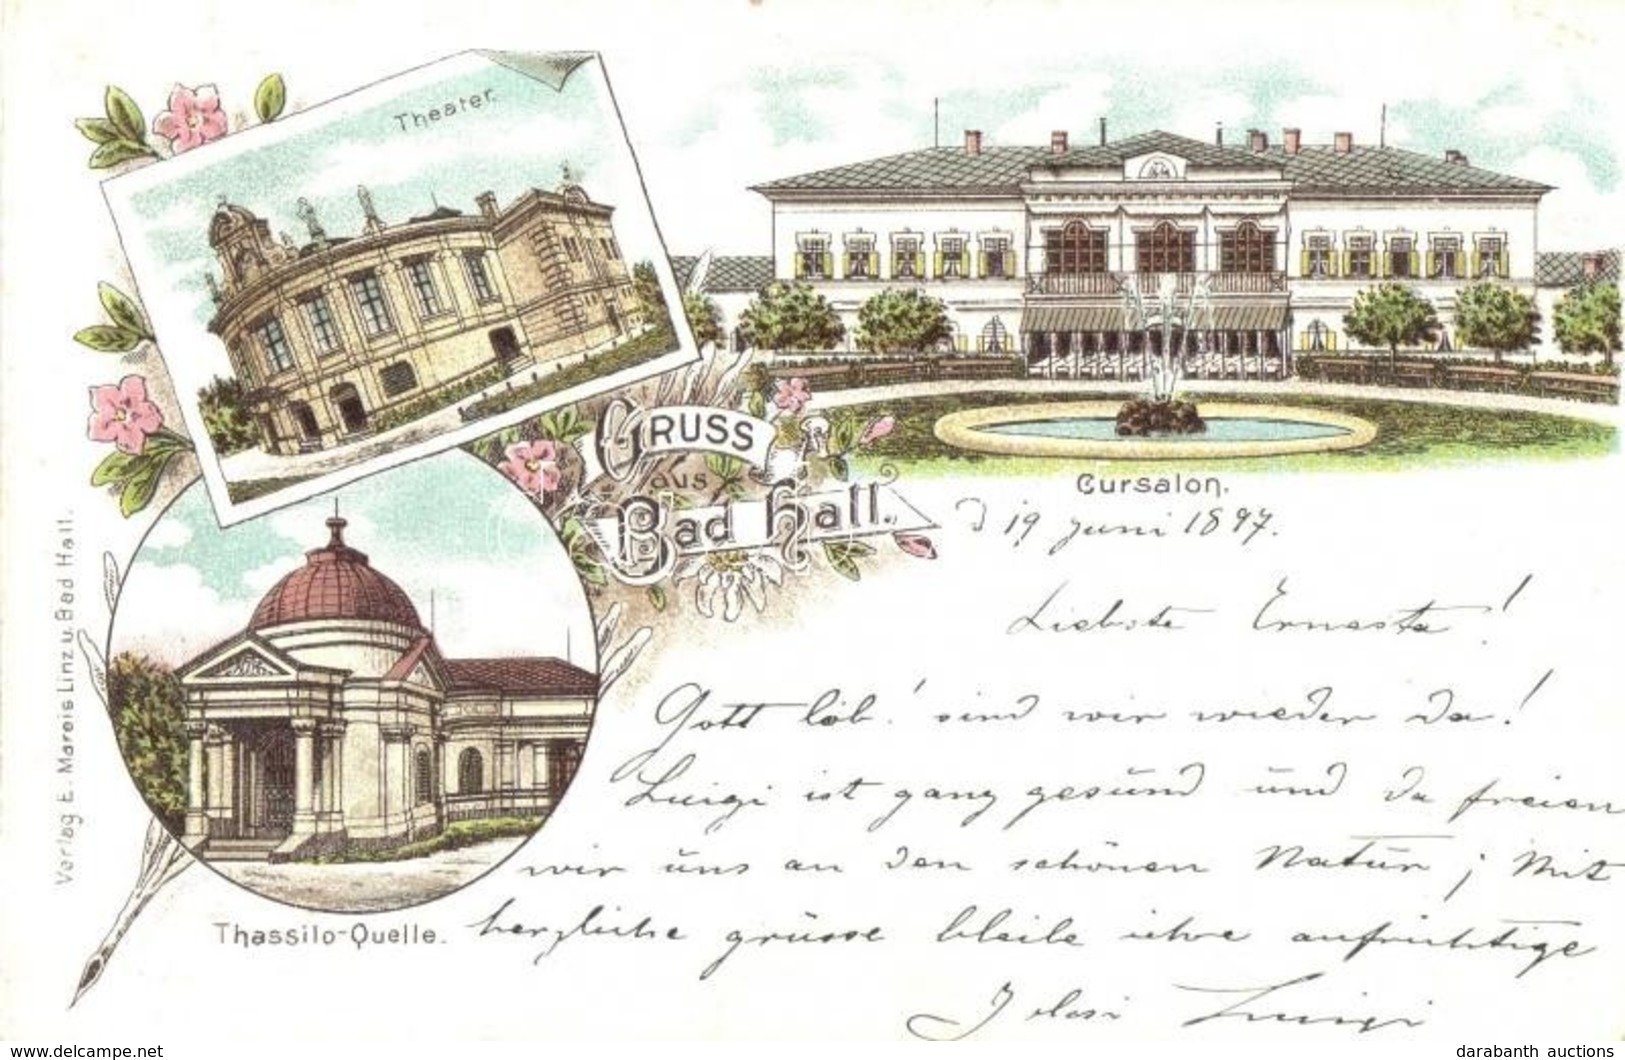 Theater.
Cursalon.
GRUSS
aus
Bad Hall.
Thassilo-Quelle.
Verlag E. Mareis Linz u. Bad Hall.
d 19 Juni 1897.
Liebste Ernesta!
Gott lob! sind wir wieder da!
Luigi ist ganz gesund und da freien
wir uns an den schönen Natur; Mit
herzliche grüsse bleibe ihre aufrichtige
Luigi
www.delcampe.net
darabanth auctions